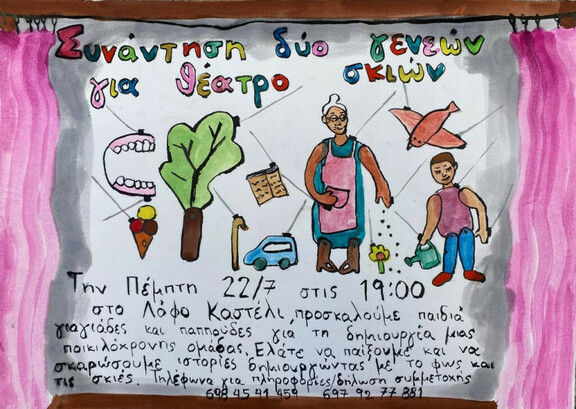 Συνάντηση δύο γενεών
για θέατρο σκιών
Την Πέμπτη 22/7 στις 19:00
στο Λόφο Καστέλι, προσκαλούμε παιδιά
γιαγιάδες και παππούδες για τη δημιουργία μιας
ποικιλόχρονης ομάδας. Ελάτε να παίξουμε και να
σκαρώσουμε ιστορίες δημιουργώντας με το φως και
τις σκιές. Τηλέφωνα για πληροφορίες/δήλωση συμμετοχής
698 45 41 459 697 92 77 881